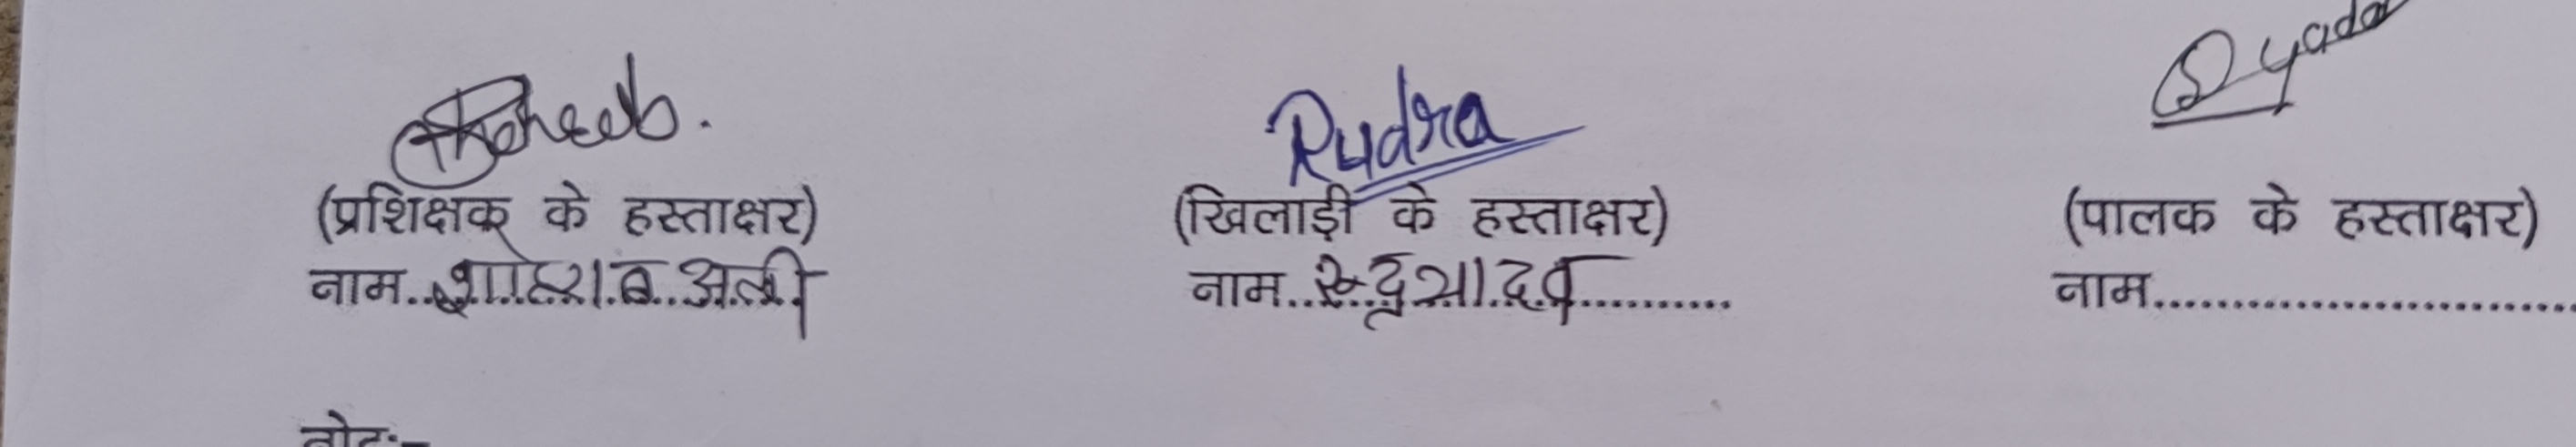 Rudra
S Yadav
(प्रशिक्षक के हस्ताक्षर) (खिलाड़ी के हस्ताक्षर) (पालक के हस्ताक्षर)
नाम.. अली नाम..रुद्र यादव.......... नाम..........................
नोट:-